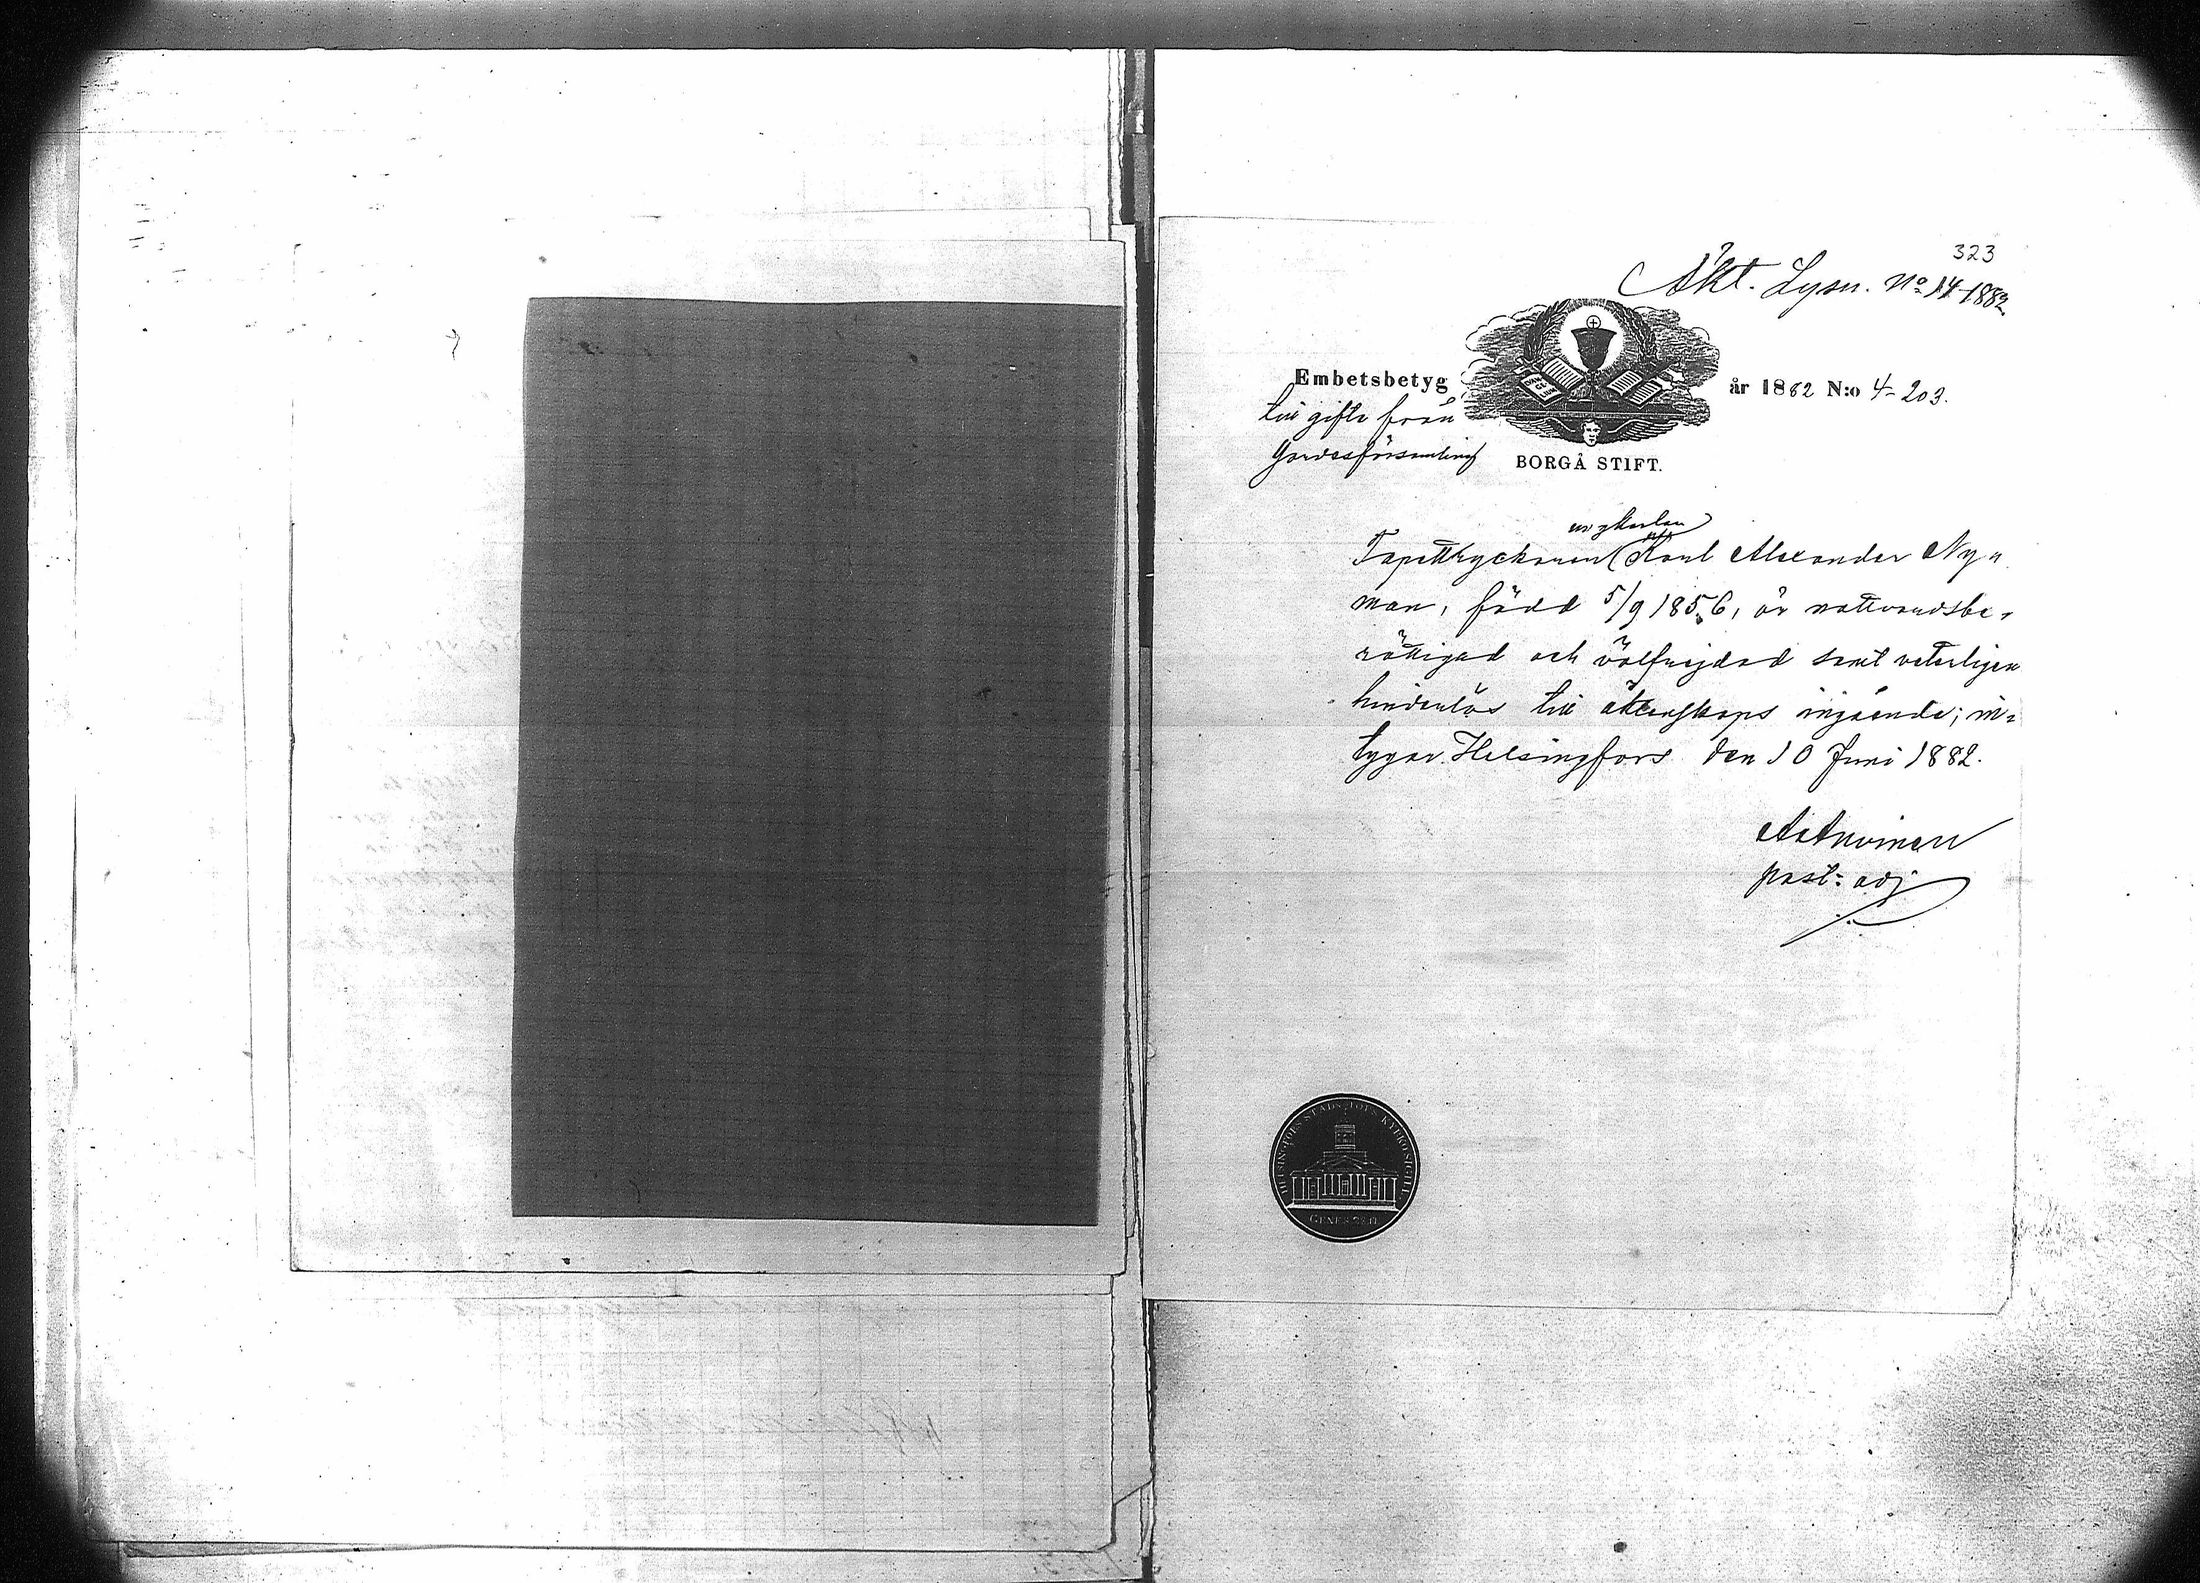 323
Äkt. Lysn. No 14 1882
Embetsbetyg
år 1882 N:o 4-203.
till gifte från
Gardesförsamling
BORGÅ STIFT.
ungkarlen
Tapettryckaren Karl Alexander Ny=
man, född 5/9 1856, är nattvardsbe-
rättigad och välfrejdad samt veterligen
hinderlös till äktenskaps ingående; in=
tygar. Helsingfors den 10 Juni 1882.
past: adj
HELSINGFORS STADS
GENES